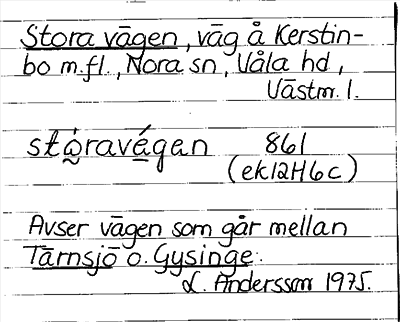 Stora vägen, väg å Kerstin-
bo m.fl., Nora sn, Våla hd,
Västm. l.
stǫ̀ravǽgan 861
(ek12H6c)
Avser vägen som går mellan
Tärnsjö o. Gysinge.
L. Andersson 1975.